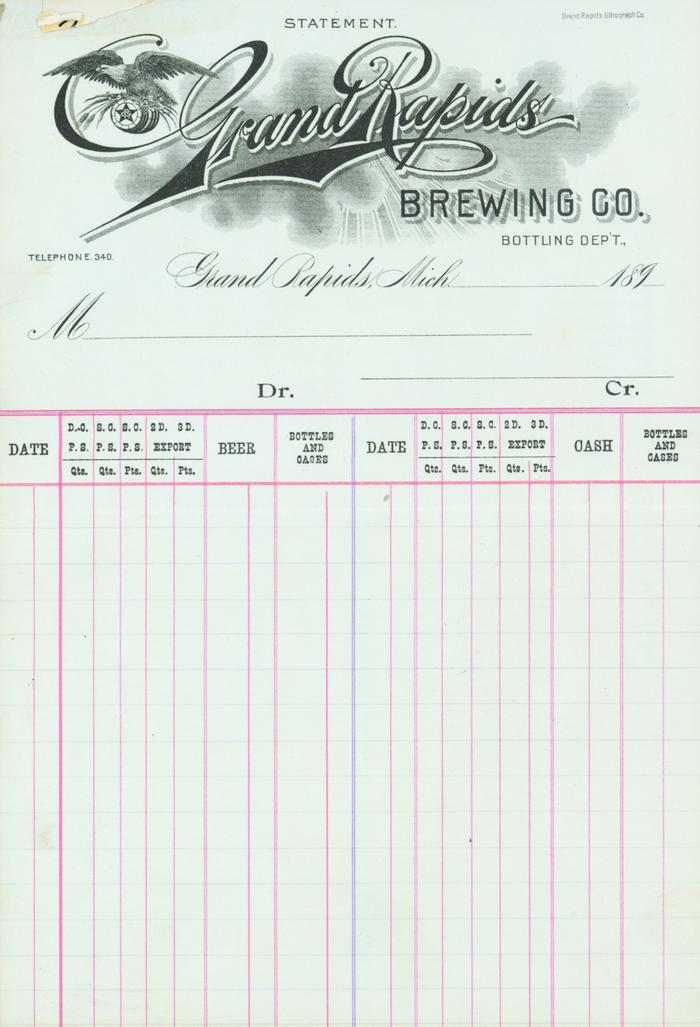 STATEMENT.
Grand Rapids Lithograph Co.
Grand Rapids
BREWING CO.
BOTTLING DEP'T.,
TELEPHONE. 340.
Grand Rapids, Mich. 189
M
Dr. Cr.
DATE D.C. S.C. S.C. 2D. 3D. BEER BOTTLES AND CASES DATE D.C. S.C. S.C. 2D. 3D. CASH BOTTLES AND CASES
P.S. P.S. P.S. EXPORT P.S. P.S. P.S. EXPORT
Qts. Qts. Pts. Qts. Pts. Qts. Qts. Pts. Qts. Pts.